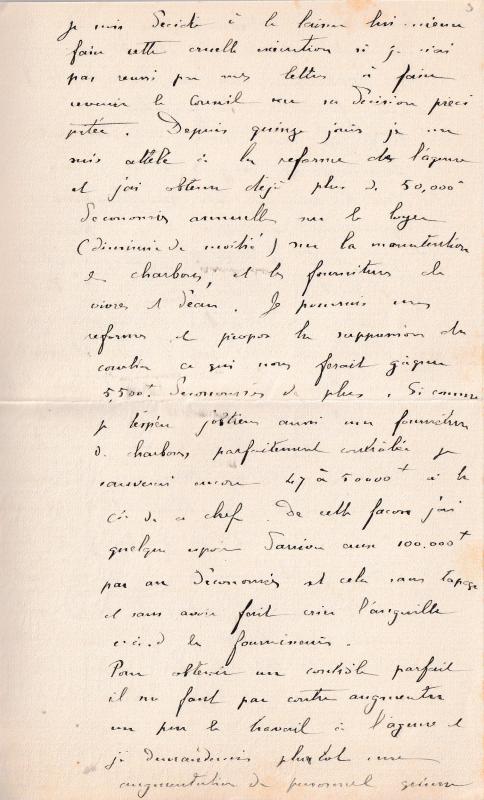 3
Je suis décidé à le laisser lui-même
faire cette cruelle exécution si je n'ai
pas réussi par mes lettres à faire
revenir le Conseil sur sa décision préci
pitée. Depuis quinze jours je me
suis attelé à la réforme de l'agence
et j'ai obtenu déjà plus de 50,000f
d'économies annuelles sur le loyer
(diminué de moitié) sur la manutention
des charbons, et les fournitures de
vivres et d'eau. Je poursuis mes
réformes et propose la suppression du
ce qui nous ferait gagner
5,500f d'économies de plus. Si comme
je l'espère j'obtiens aussi une fourniture
de charbons parfaitement contrôlée je
sauverai encore 47 à 50000f à la
Cie de ce chef. De cette façon j'ai
quelque espoir d'arriver aux 100.000f
par an d'économies et cela sans tapage
et sans avoir fait crier l'anguille
c.à.d les fournisseurs.
Pour obtenir un contrôle parfait
il me faut par contre augmenter
un peu le travail à l'agence et
je demanderais plutôt une
augmentation de personnel